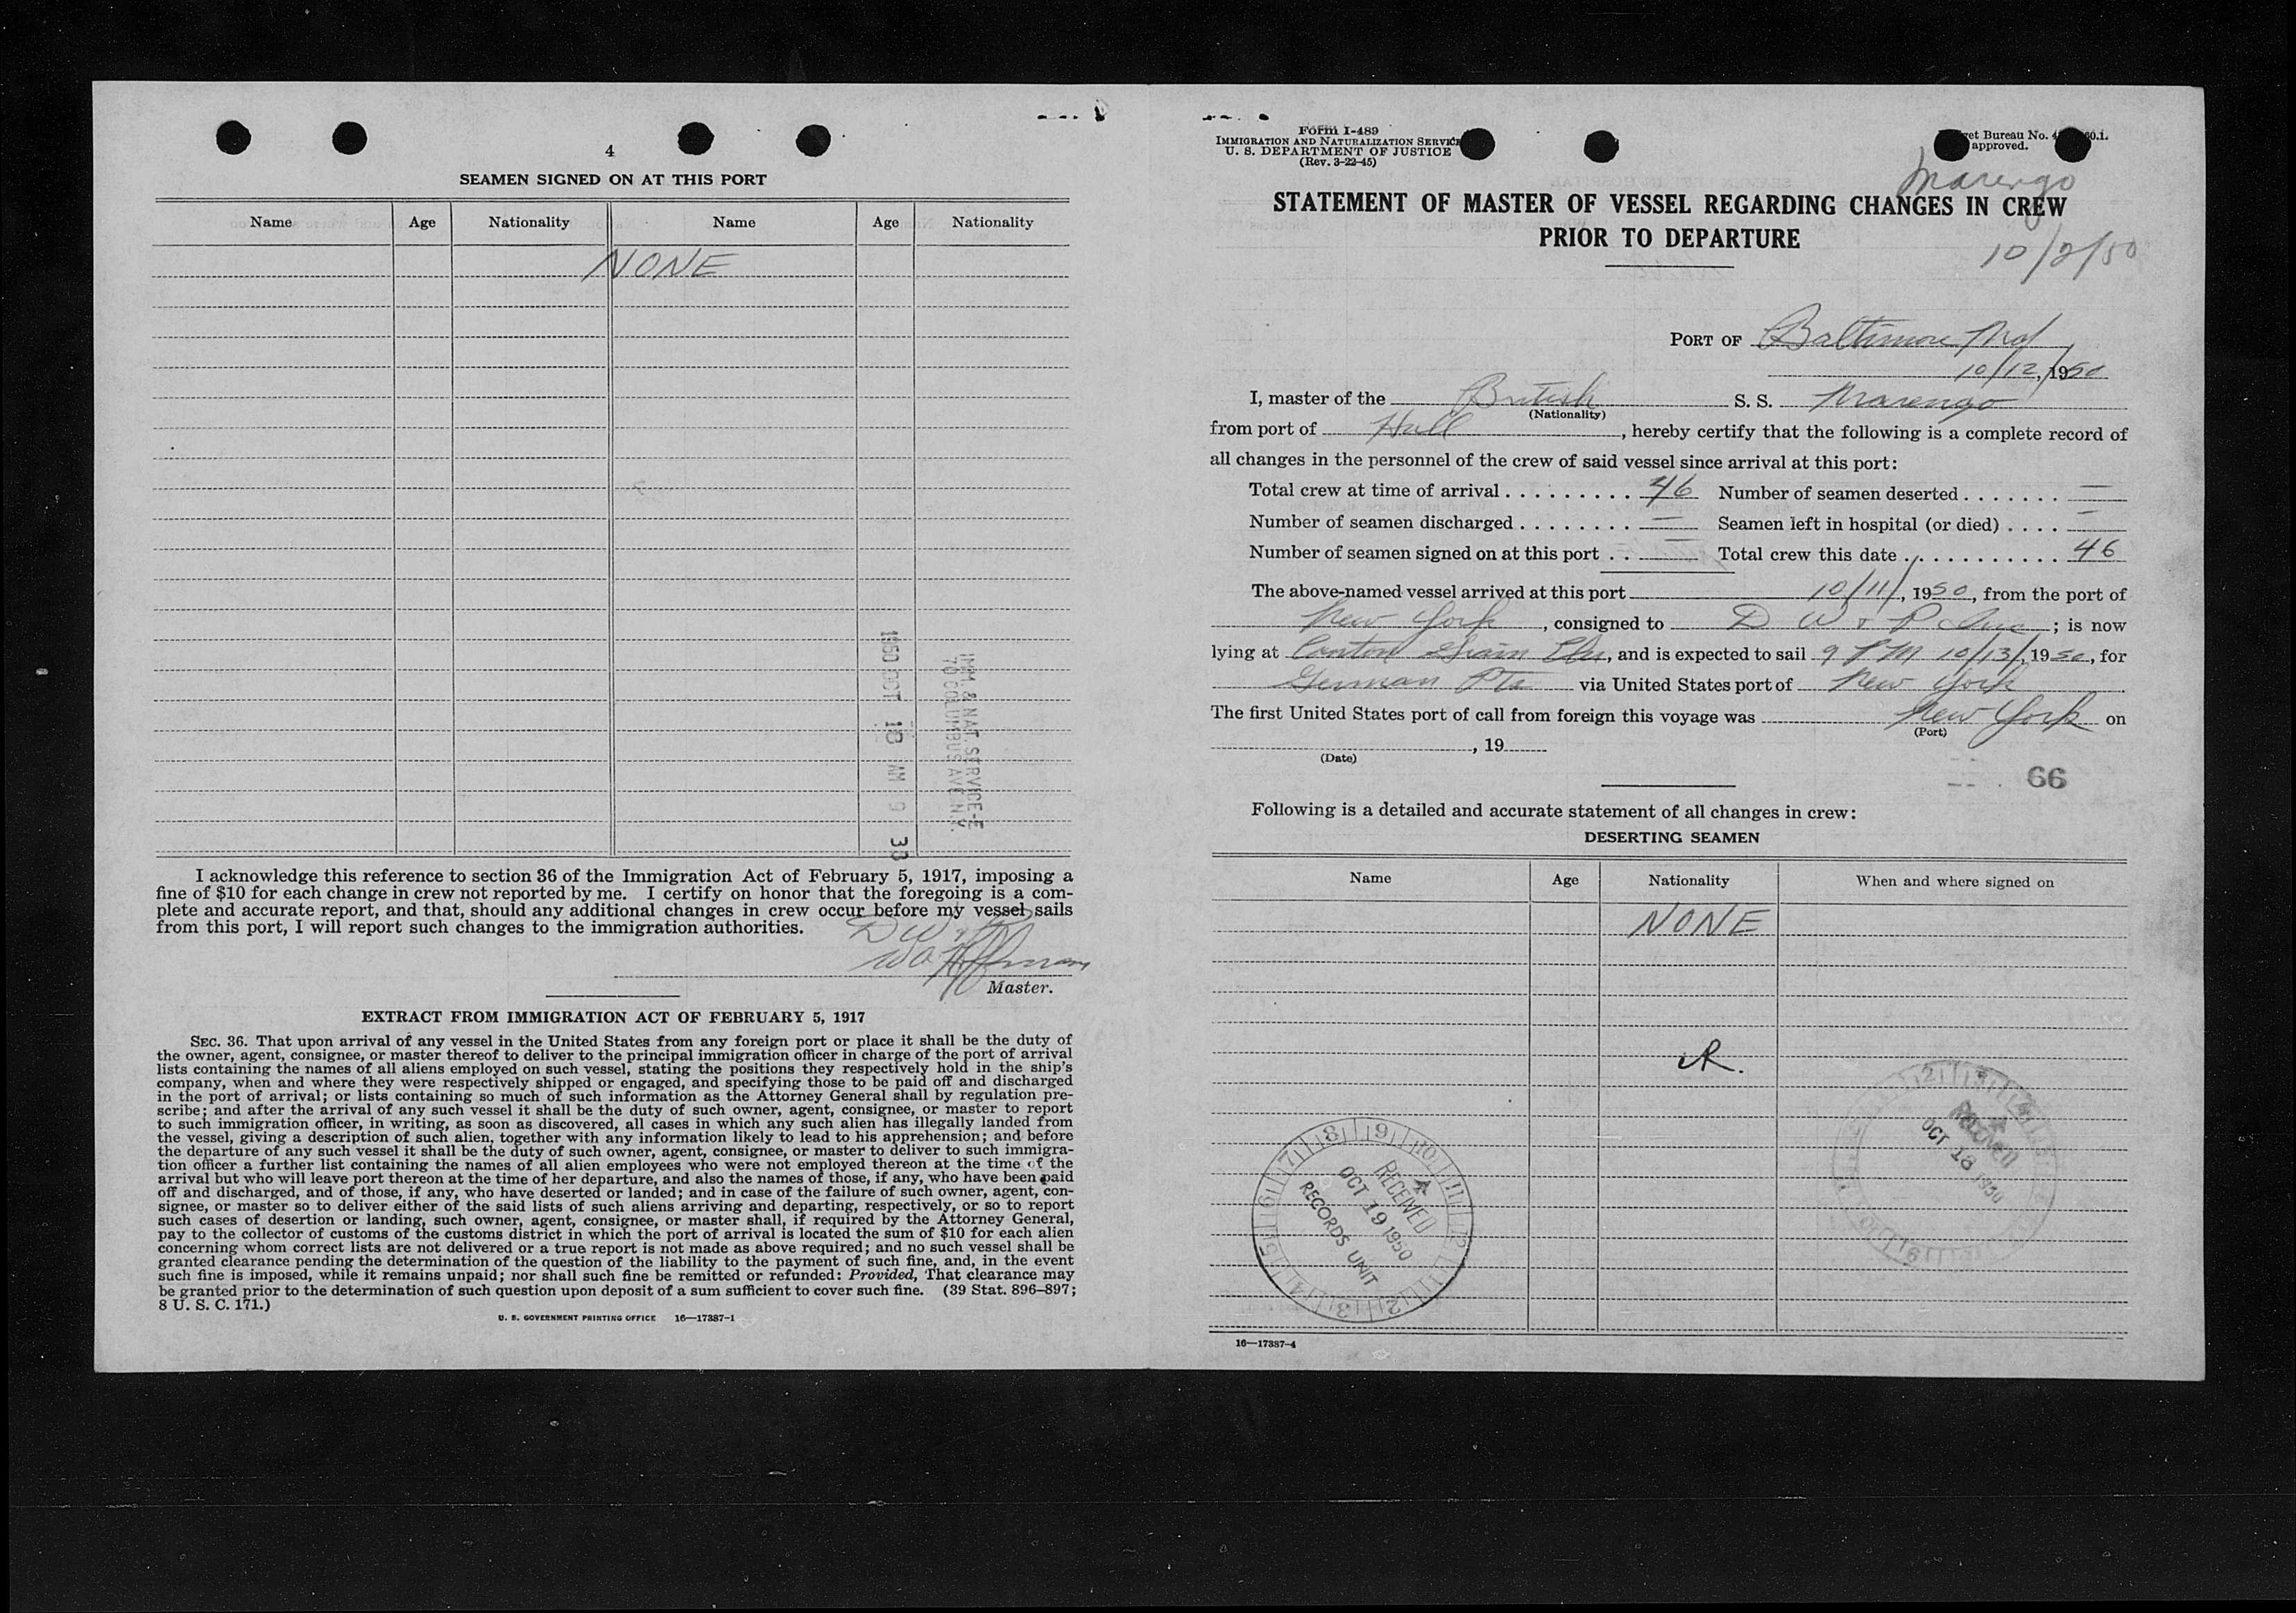 4
SEAMEN SIGNED ON AT THIS PORT
Name Age Nationality Name Age Nationality
NONE
1950 OCT 18 AM 9 33
IMM. & NAT. SERVICE-E
70 COLUMBUS AVE N.Y.
I acknowledge this reference to section 36 of the Immigration Act of February 5, 1917, imposing a
fine of $10 for each change in crew not reported by me. I certify on honor that the foregoing is a com-
plete and accurate report, and that, should any additional changes in crew occur before my vessel sails
from this port, I will report such changes to the immigration authorities.
Master.
EXTRACT FROM IMMIGRATION ACT OF FEBRUARY 5, 1917
SEC. 36. That upon arrival of any vessel in the United States from any foreign port or place it shall be the duty of
the owner, agent, consignee, or master thereof to deliver to the principal immigration officer in charge of the port of arrival
lists containing the names of all aliens employed on such vessel, stating the positions they respectively hold in the ship's
company, when and where they were respectively shipped or engaged, and specifying those to be paid off and discharged
in the port of arrival; or lists containing so much of such information as the Attorney General shall by regulation pre-
scribe; and after the arrival of any such vessel it shall be the duty of such owner, agent, consignee, or master to report
to such immigration officer, in writing, as soon as discovered, all cases in which any such alien has illegally landed from
the vessel, giving a description of such alien, together with any information likely to lead to his apprehension; and before
the departure of any such vessel it shall be the duty of such owner, agent, consignee, or master to deliver to such immigra-
tion officer a further list containing the names of all alien employees who were not employed thereon at the time of the
arrival but who will leave port thereon at the time of her departure, and also the names of those, if any, who have been paid
off and discharged, and of those, if any, who have deserted or landed; and in case of the failure of such owner, agent, con-
signee, or master so to deliver either of the said lists of such aliens arriving and departing, respectively, or so to report
such cases of desertion or landing, such owner, agent, consignee, or master shall, if required by the Attorney General,
pay to the collector of customs of the customs district in which the port of arrival is located the sum of $10 for each alien
concerning whom correct lists are not delivered or a true report is not made as above required; and no such vessel shall be
granted clearance pending the determination of the question of the liability to the payment of such fine, and, in the event
such fine is imposed, while it remains unpaid; nor shall such fine be remitted or refunded: Provided, That clearance may
be granted prior to the determination of such question upon deposit of a sum sufficient to cover such fine. (39 Stat. 896-897;
8 U. S. C. 171.)
U. S. GOVERNMENT PRINTING OFFICE 16—17387-1
Form I-489
IMMIGRATION AND NATURALIZATION SERVICE
U. S. DEPARTMENT OF JUSTICE
(Rev. 3-22-45)
Bureau No.
approved.
Marengo
STATEMENT OF MASTER OF VESSEL REGARDING CHANGES IN CREW
PRIOR TO DEPARTURE
10/2/50
PORT OF Baltimore Md
10/12, 1950
I, master of the British S. S. Marengo
(Nationality)
from port of Hull, hereby certify that the following is a complete record of
all changes in the personnel of the crew of said vessel since arrival at this port:
Total crew at time of arrival . . . . . . . . . 46 Number of seamen deserted . . . . . . . —
Number of seamen discharged . . . . . . . . — Seamen left in hospital (or died) . . . . —
Number of seamen signed on at this port . . — Total crew this date . . . . . . . . . . . . 46
The above-named vessel arrived at this port 10/11/, 1950, from the port of
New York, consigned to D W & P Inc; is now
lying at Canton Grain Elv, and is expected to sail 9 PM 10/13/, 1950, for
German Pts via United States port of New York
The first United States port of call from foreign this voyage was New York on
(Port)
, 19
(Date)
66
Following is a detailed and accurate statement of all changes in crew:
DESERTING SEAMEN
Name Age Nationality When and where signed on
NONE
R.
RECEIVED
OCT 18 1950
RECEIVED
OCT 19 1950
RECORDS UNIT
16—17387-4